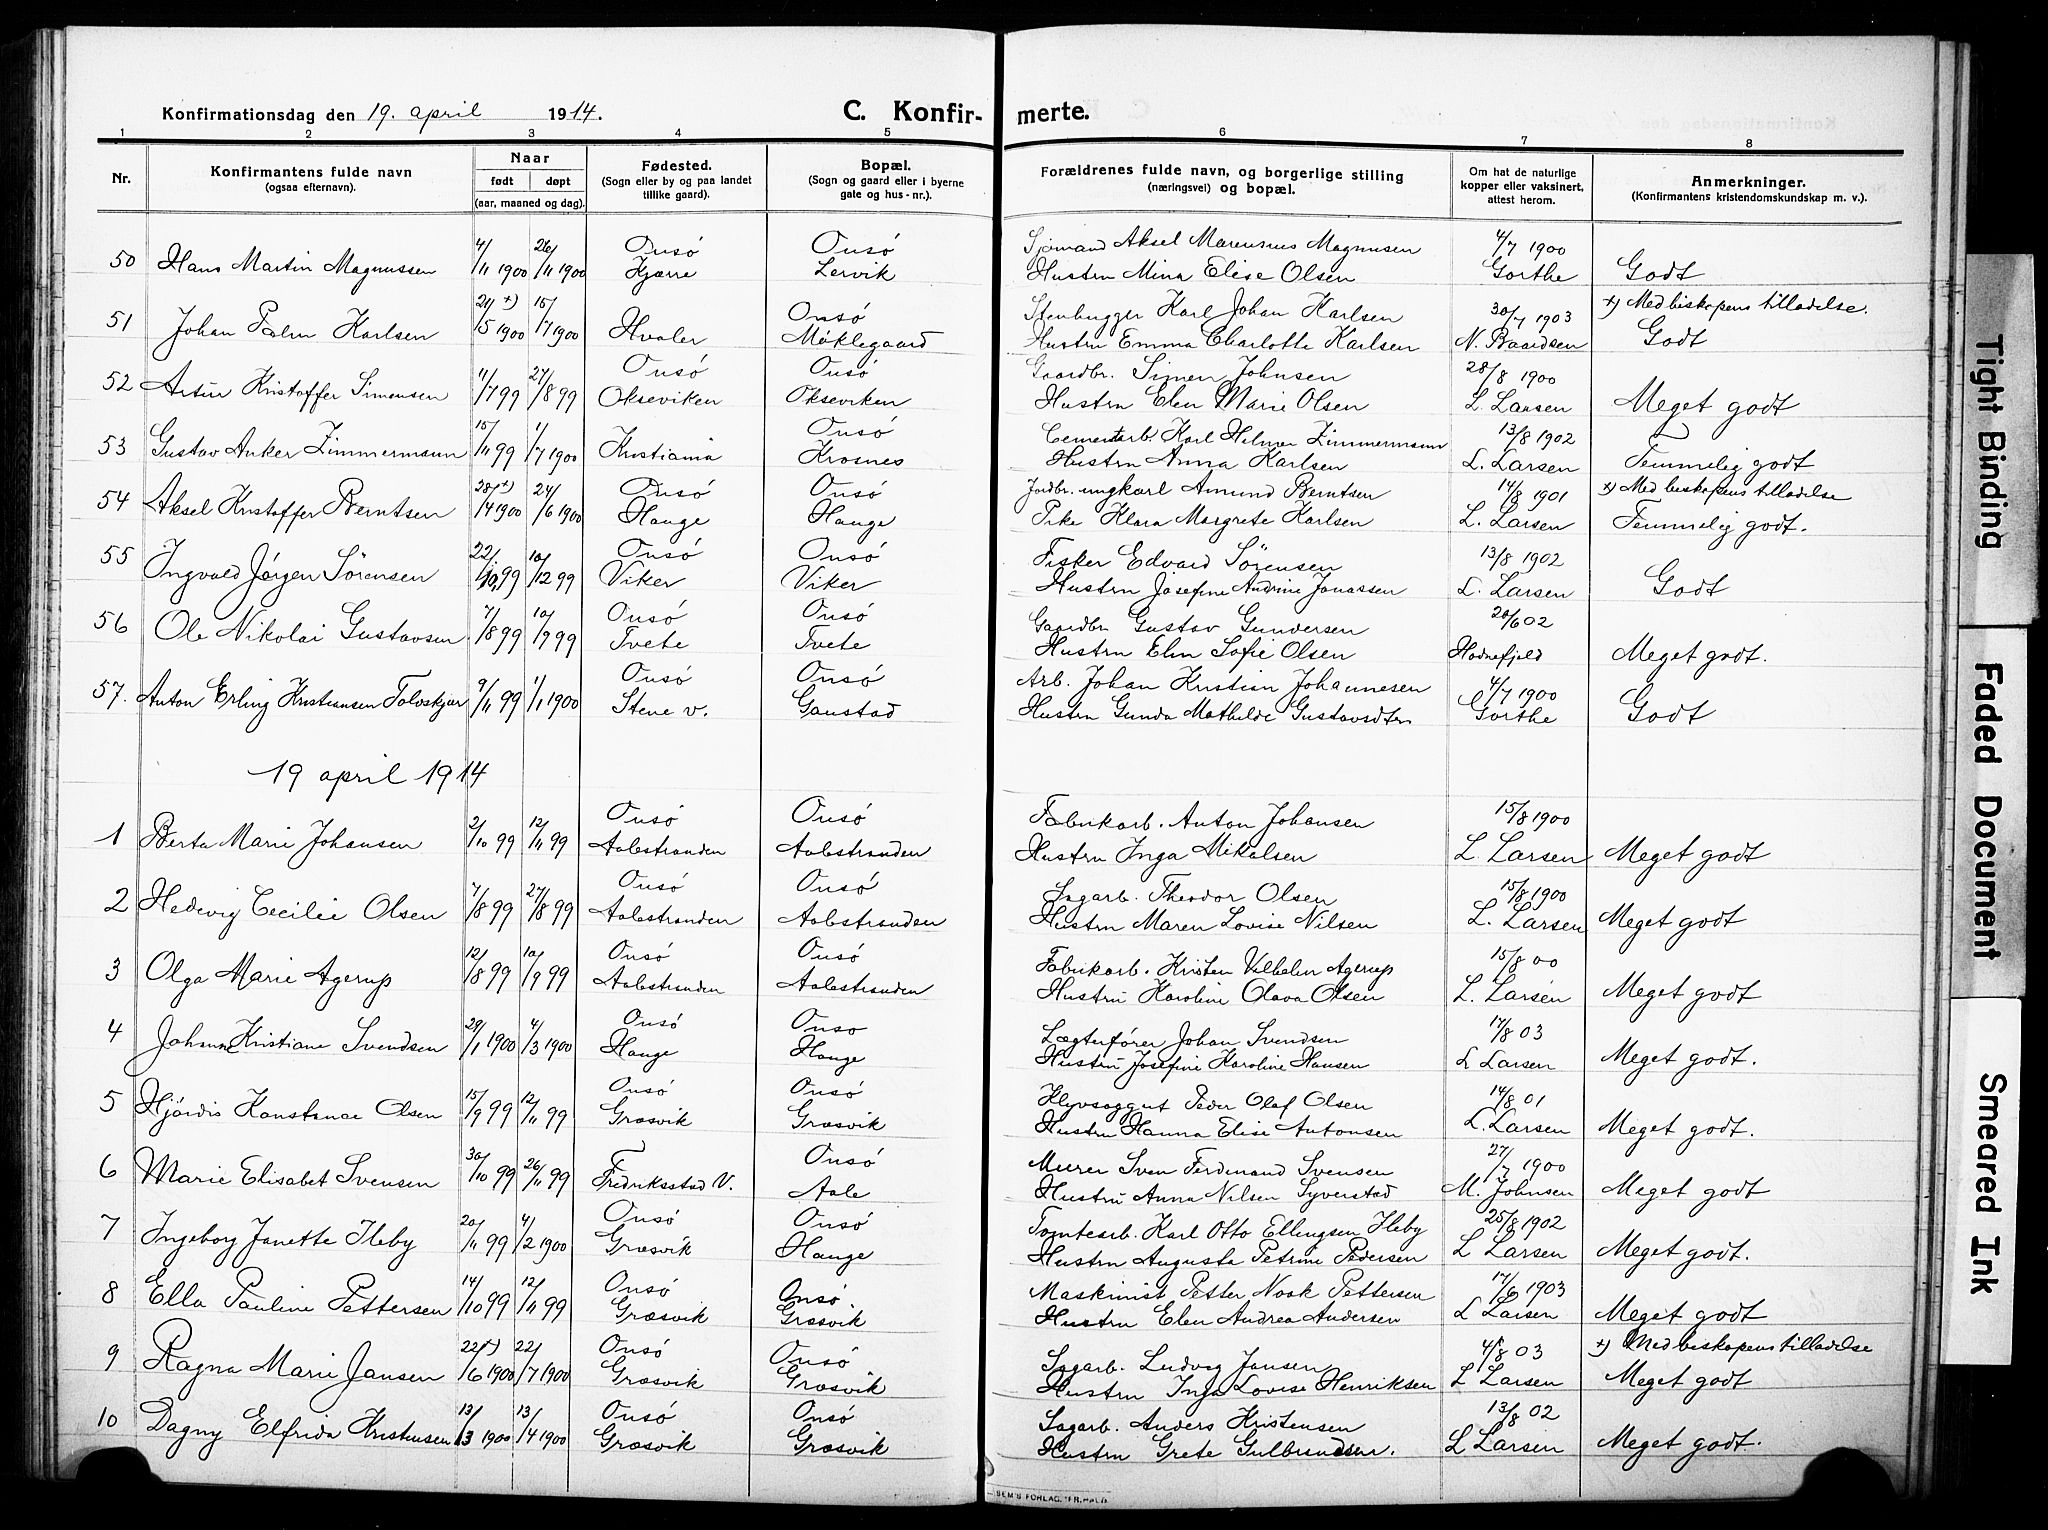 Konfirmationsdag den 19. april 1914. C. Konfirmerte.
1 2 3 4 5 6 7 8
Nr. Konfirmantens fulde navn (ogsaa efternavn). Naar født døpt (aar, maaned og dag). Fødested. (Sogn eller by og paa landet tillike gaard). Bopæl. (Sogn og gaard eller i byerne gate og hus-nr.). Forældrenes fulde navn, og borgerlige stilling (næringsvei) og bopæl. Om hat de naturlige kopper eller vaksinert, attest herom. Anmerkninger. (Konfirmantens kristendomskundskap m. v.).
4/ 26/ Onsö Onsö Sjömand Aksel Marensius Magnusen 4/7 1900
50 Hans Martin Magnussen /11 1900 /11 1900 Kjærre Lervik Hustru Mina Elise Olsen Gorthe Godt
21/ +) 15/ Onsö Stenhugger Karl Johan Karlsen 30/7 1903 +) Med biskopens tilladelse.
51 Johan Palm Karlsen /5 1900 /7 1900 Hvaler Møklegaard Hustru Emma Charlotte Karlsen N. Baardsen Godt
11/ 27/ Onsö Onsö Gaardbr. Simen Johnsen 28/8 1900
52 Artur Kristoffer Simensen /7 99 /8 99 Okseviken Okseviken Hustru Elen Marie Olsen L. Larsen Meget godt
15/ 1/ Onsö Cementarb. Karl Hilmer Zimmermann 13/8 1902
53 Gustav Anker Zimmermann /11 99 /7 1900 Kristiania Krosnes Hustru Anna Karlsen L. Larsen Temmelig godt
28/ +) 24/ Onsö Onsö Jordbr. ungkarl Amund Berntsen 14/8 1901 +) Med biskopens tilladelse
54 Aksel Kristoffer Berntsen /4 1900 /6 1900 Hauge Hauge Pike Klara Margrete Karlsen L. Larsen Temmelig godt.
22/ 10/ Onsö Onsö Fisker Edvard Sörensen 13/8 1902
55 Ingvald Jørgen Sörensen /10 99 /12 99 Viker Viker Hustru Josefine Andrine Jonassen L. Larsen Godt
7/ 10/ Onsö Onsö Gaardbr Gustav Gundersen 20/6 02
56 Ole Nikolai Gustavsen /8 99 /9 99 Tvete Tvete Hustru Elin Sofie Olsen Hodnefjeld Meget godt.
9/ 1/ Onsö Onsö Arb. Johan Kristian Johannesen 4/7 1900
57. Anton Erling Kristiansen Tolvskjær /11 99 /1 1900 Stene v. Gaustad Hustru Gunda Mathilde Gustavsdtr Gorthe Godt
19 april 1914
2/ 12/ Onsö Onsö Fabrikarb. Anton Johansen 15/8 1900
1 Berta Marie Johansen /10 99 /11 99 Aalestranden Aalestranden Hustru Inga Mikalsen L. Larsen Meget godt
7/ 27/ Onsö Onsö Sagarb. Theodor Olsen 15/8 1900
2 Hedevig Cecilie Olsen /8 99 /8 99 Aalestranden Aalestranden Hustru Maren Lovise Nilsen L. Larsen Meget godt
12/ 10/ Onsö Onsö Fabrikarb. Kristen Vilhelm Agerup 15/8 00
3 Olga Marie Agerup /8 99 /9 99 Aalestranden Aalestranden Hustru Karoline Olava Olsen L. Larsen Meget godt
29/ 4/ Onsö Onso Lægterfører Johan Svendsen 17/8 03
4 Johanne Kristiane Svendsen /1 1900 /3 1900 Hauge Hauge Hustru Josefine Karoline Hansen L Larsen Meget godt.
15/ 12/ Onsö Onsö Klyvsaggut Peder Olaf Olsen 14/8 01
5 Hjördis Konstance Olsen /9 99 /11 99 Græsvik Græsvik Hustru Hanna Elise Antonsen L. Larsen Meget godt.
30/ 26/ Onsö Murer Sven Ferdinand Svensen 27/7 1900
6 Marie Elisabet Svensen /10 99 /11 99 Fredriksstad V. Aale Hustru Anna Nilsen Syverstad M. Johnsen Meget godt
20/ 4/ Onsö Onsö Tomtearb. Karl Otto Ellingsen Ileby 25/8 1902
7 Ingeborg Janette Ileby /11 99 /2 1900 Græsvik Hauge Hustru Augusta Petrine Pedersen L Larsen Meget godt.
14/ 12/ Onsö Onsö. Maskinist Petter Noak Pettersen 17/6 1903
8 Ella Pauline Pettersen /10 99 /11 99 Græsvik Græsvik Hustru Elen Andrea Andersen L Larsen Meget godt
22/ +) 22/ Onsö Onsö Sagarb. Ludvig Jansen 4/8 03 +) Med biskopens tilladelse
9 Ragna Marie Jansen /6 1900 /7 1900 Græsvik Græsvik Hustru Inga Lovise Henriksen L Larsen Meget godt
13/ 13/ Onsö Onsö Sagarb. Anders Kristensen 13/8 02
10 Dagny Elfrida Kristensen /3 1900 /4 1900 Græsvik Græsvik Hustru Grete Gulbrandsen. L Larsen Meget godt.
SEM'S FORLAG, FR.HALD.
Tight Binding
Faded Document
Smeared Ink